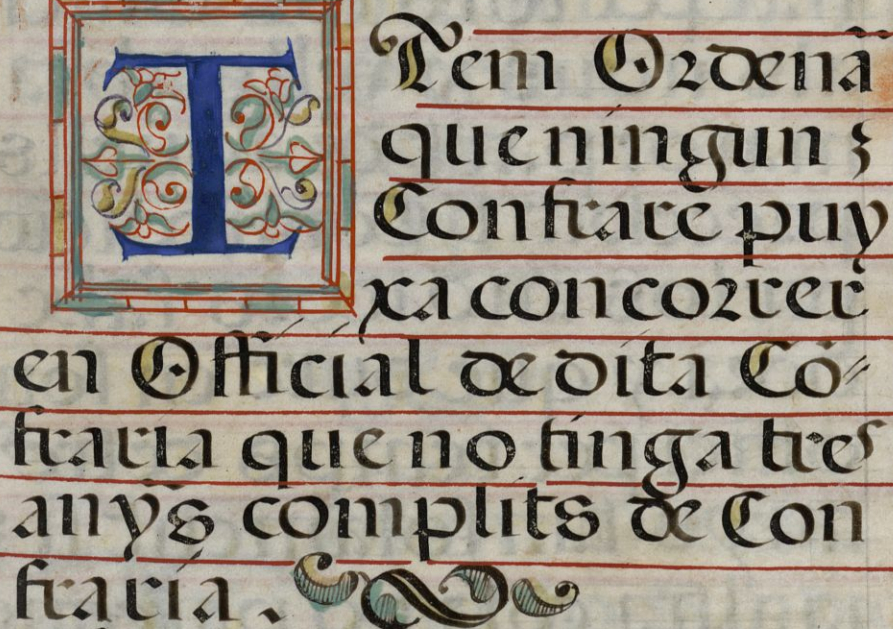 Tem Ordenã
que ningun
Confrare puy
xa concorrer
en Official de dita Cõ
fraria que no tinga tres
anys complits de Con
fraria.